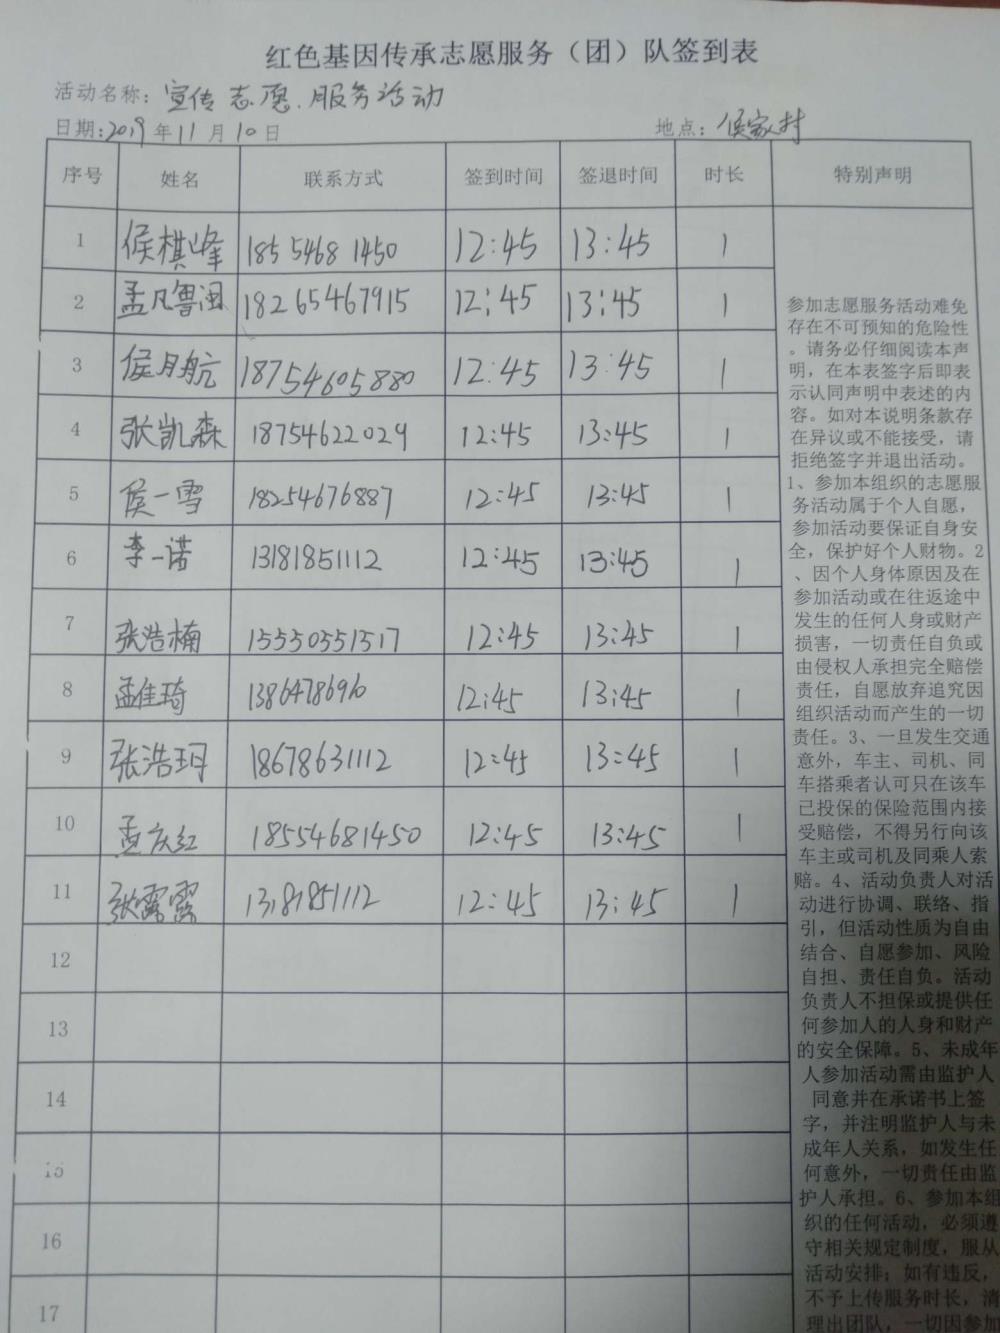 红色基因传承志愿服务（团）队签到表
活动名称：宣传志愿服务活动
日期：2019年11月10日 地点：侯家村
序号 姓名 联系方式 签到时间 签退时间 时长 特别声明
1 侯棋峰 18554681450 12:45 13:45 1
2 孟凡鲁闽 18265467915 12:45 13:45 1
3 侯月航 18754605880 12:45 13:45 1
4 张凯森 18754622029 12:45 13:45 1
5 侯一雪 18254676887 12:45 13:45 1
6 李一诺 13181851112 12:45 13:45 1
7 张浩楠 15550551517 12:45 13:45 1
8 孟佳琦 12:45 13:45 1
9 张浩玥 18678631112 12:45 13:45 1
10 孟庆红 18554681450 12:45 13:45 1
11 张露露 13181851112 12:45 13:45 1
12
13
14
15
16
17
参加志愿服务活动难免
存在不可预知的危险性
。请务必仔细阅读本声
明，在本表签字后即表
示认同声明中表述的内
容。如对本说明条款存
在异议或不能接受，请
拒绝签字并退出活动。
1、参加本组织的志愿服
务活动属于个人自愿，
参加活动要保证自身安
全，保护好个人财物。2
、因个人身体原因及在
参加活动或在往返途中
发生的任何人身或财产
损害，一切责任自负或
由侵权人承担完全赔偿
责任，自愿放弃追究因
组织活动而产生的一切
责任。3、一旦发生交通
意外，车主、司机、同
车搭乘者认可只在该车
已投保的保险范围内接
受赔偿，不得另行向该
车主或司机及同乘人索
赔。4、活动负责人对活
动进行协调、联络、指
引，但活动性质为自由
结合、自愿参加、风险
自担、责任自负。活动
负责人不担保或提供任
何参加人的人身和财产
的安全保障。5、未成年
人参加活动需由监护人
同意并在承诺书上签
字，并注明监护人与未
成年人关系，如发生任
何意外，一切责任由监
护人承担。6、参加本组
织的任何活动，必须遵
守相关规定制度，服从
活动安排；如有违反，
不予上传服务时长，清
理出团队，一切因参加